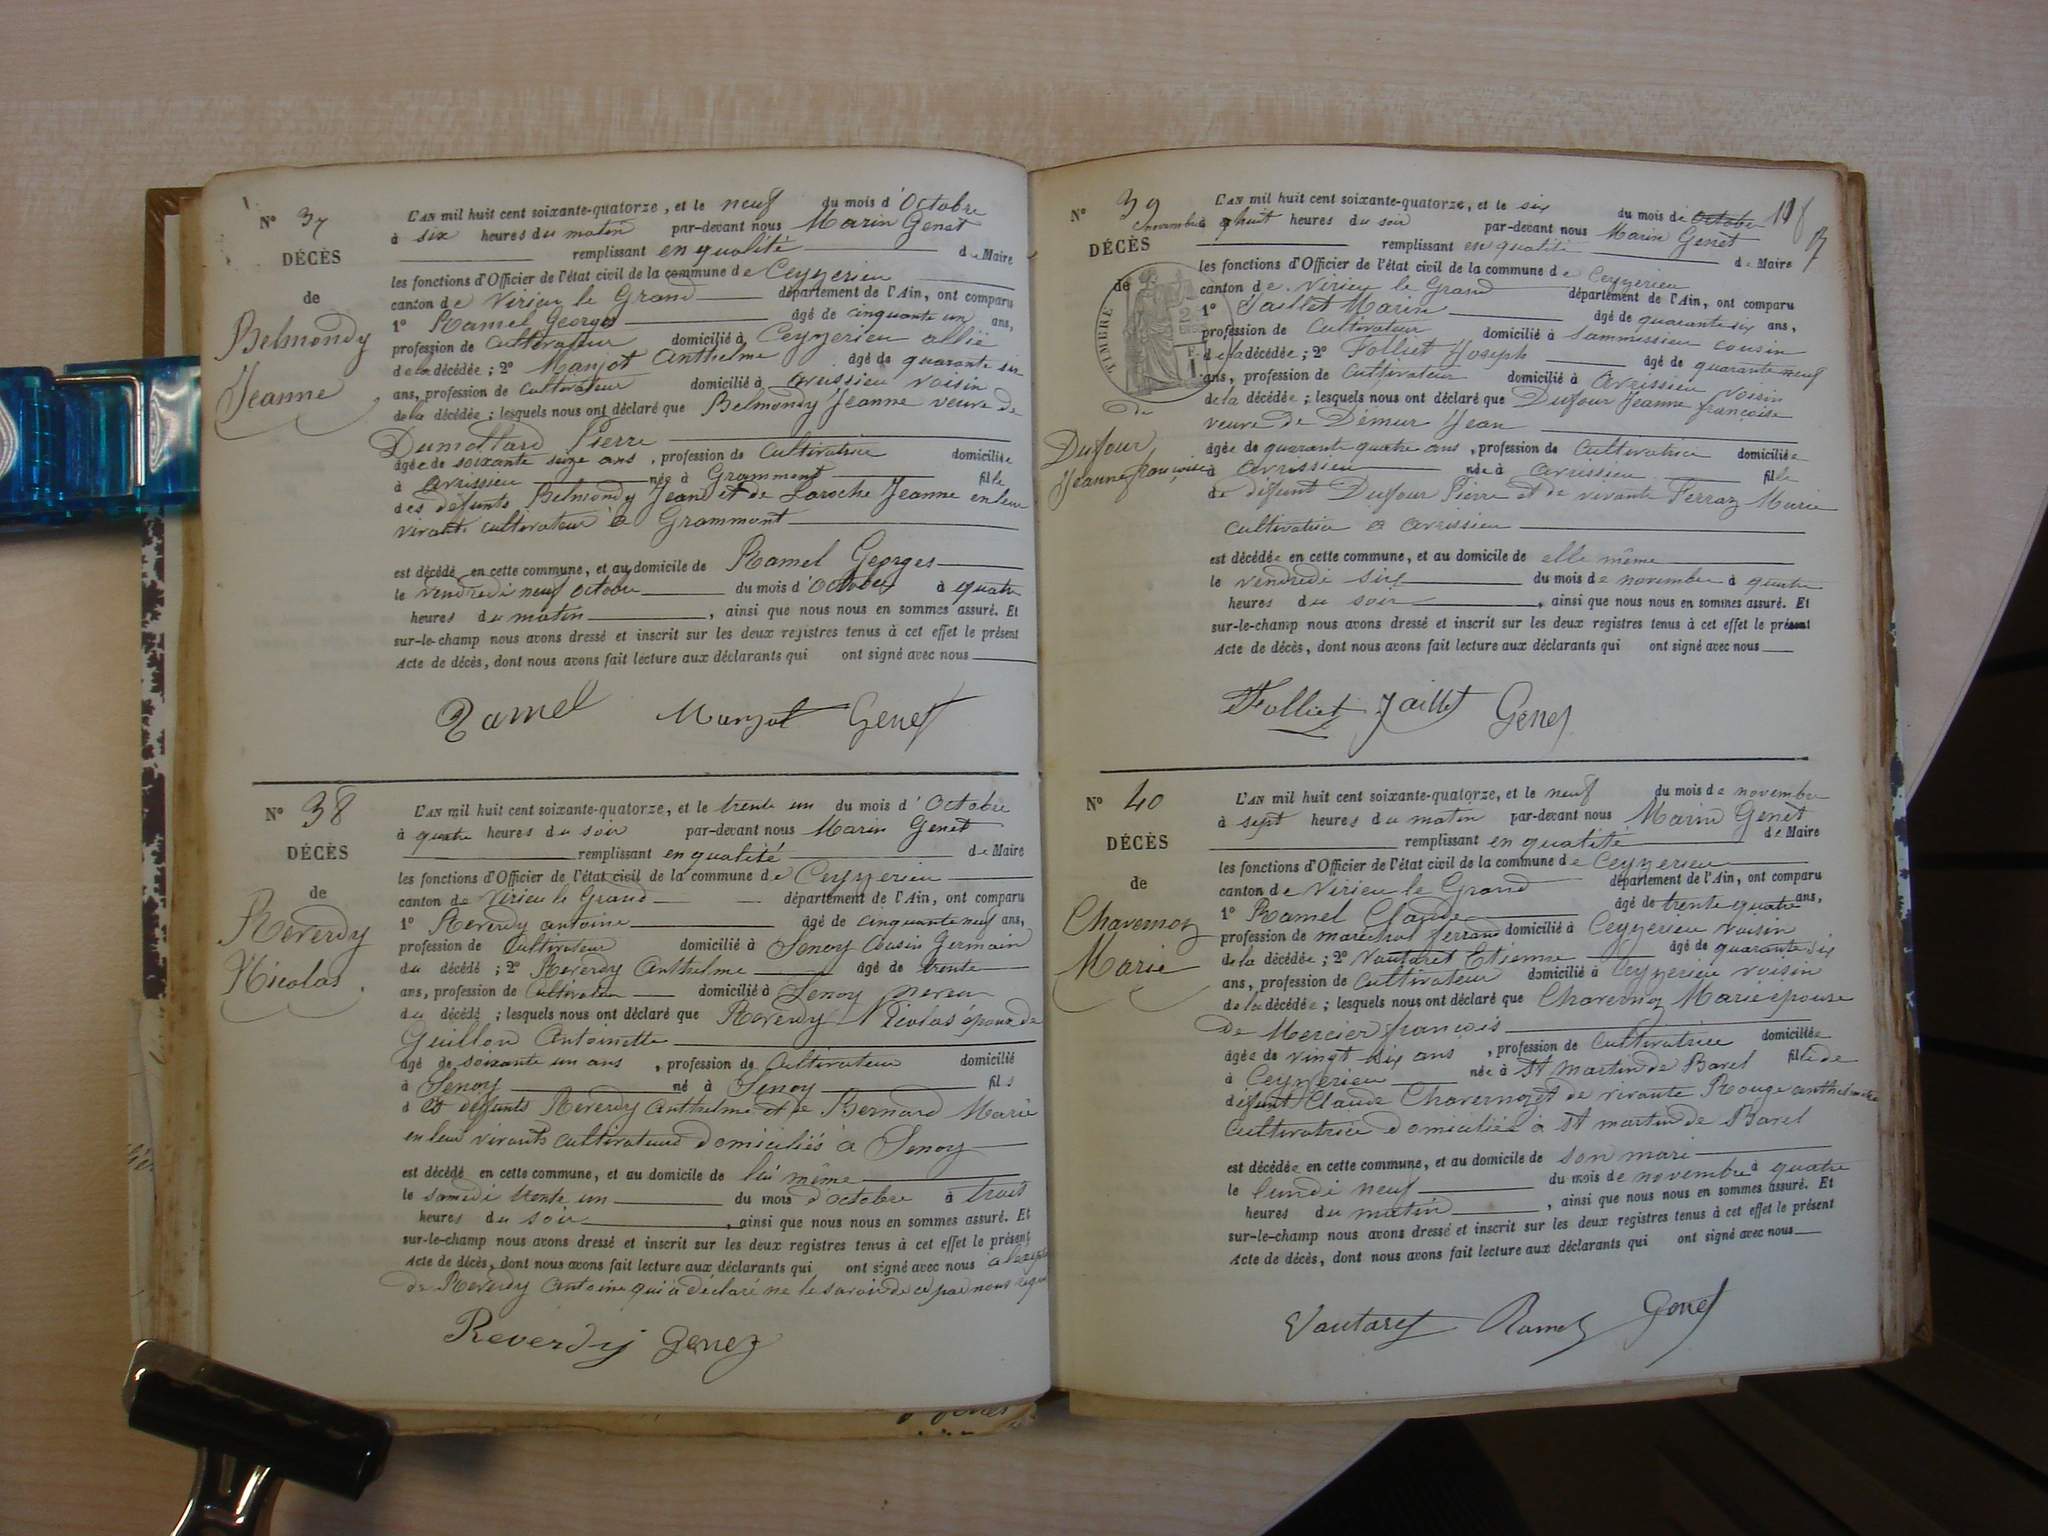 N° 37
DÉCÈS
de
Belmondy
Jeanne
L'AN mil huit cent soixante-quatorze, et le neuf du mois d'Octobre
à six heures du matin par-devant nous Marin Genet
remplissant en qualité de Maire
les fonctions d'Officier de l'état civil de la commune de Ceyzerieu
canton de Virieu le Grand département de l'Ain, ont comparu
1° Ramel Georges âgé de cinquante un ans,
profession de Cultivateur domicilié à Ceyzerieu allié
de la décédée ; 2° Manjot Anthelme âgé de quarante six
ans, profession de Cultivateur domicilié à avrissieu voisin
de la décédée ; lesquels nous ont déclaré que Belmondy Jeanne veuve de
Dumollard Pierre
âgée de soixante seize ans , profession de Cultivatrice domiciliée
à avrissieu née à Grammont fille
des défunts Belmondy Jean et de Laroche Jeanne en leur
vivant cultivateur à Grammont
est décédé en cette commune, et au domicile de Ramel Georges
le vendredi neuf octobre du mois d'octobre à quatre
heures du matin , ainsi que nous nous en sommes assuré. Et
sur-le-champ nous avons dressé et inscrit sur les deux registres tenus à cet effet le présent
Acte de décès, dont nous avons fait lecture aux déclarants qui ont signé avec nous
Ramel Manjot Genet
N° 38
DÉCÈS
de
Reverdy
Nicolas.
L'AN mil huit cent soixante-quatorze, et le trente un du mois d'Octobre
à quatre heures du soir par-devant nous Marin Genet
remplissant en qualité de Maire
les fonctions d'Officier de l'état civil de la commune de Ceyzerieu
canton de Virieu le Grand département de l'Ain, ont comparu
1° Reverdy antoine âgé de cinquante neuf ans,
profession de Cultivateur domicilié à Senoy Cousin Germain
du décédé ; 2° Reverdy Anthelme âgé de trente
ans, profession de Cultivateur domicilié à Senoy neveu
du décédé ; lesquels nous ont déclaré que Reverdy Nicolas époux de
Guillon Antoinette
âgé de soixante un ans , profession de Cultivateur domicilié
à Senoy né à Senoy fils
d défunts Reverdy Anthelme et de Bernard Marie
en leur vivants cultivateurs domiciliés à Senoy
est décédé en cette commune, et au domicile de lui même
le samedi trente un du mois d'octobre à trois
heures du soir , ainsi que nous nous en sommes assuré. Et
sur-le-champ nous avons dressé et inscrit sur les deux registres tenus à cet effet le présent
Acte de décès, dont nous avons fait lecture aux déclarants qui ont signé avec nous
de Reverdy Antoine qui a déclaré ne le savoir de ce par nous
Reverdy Genet
118
N° 39
DÉCÈS
de
TIMBRE
de
Dufour
Jeanne françoise
L'AN mil huit cent soixante-quatorze, et le six du mois de Octobre
novembre à huit heures du soir par-devant nous Marin Genet
remplissant en qualité de Maire
les fonctions d'Officier de l'état civil de la commune de Ceyzerieu
canton de Virieu le Grand département de l'Ain, ont comparu
1° Jaillet Marin âgé de quarante six ans,
profession de Cultivateur domicilié à Sammissieu cousin
de la décédée ; 2° Folliet Joseph âgé de quarante neuf
ans, profession de Cultivateur domicilié à Avrissieu voisin
de la décédée ; lesquels nous ont déclaré que Dufour Jeanne françoise
veuve de Démeur Jean
âgée de quarante quatre ans , profession de Cultivatrice domiciliée
à avrissieu née à avrissieu fille
de défunt Dufour Pierre et de vivante Perraz Marie
cultivatrice à avrissieu
est décédée en cette commune, et au domicile de elle même
le vendredi six du mois de novembre à quatre
heures du soir , ainsi que nous nous en sommes assuré. Et
sur-le-champ nous avons dressé et inscrit sur les deux registres tenus à cet effet le présent
Acte de décès, dont nous avons fait lecture aux déclarants qui ont signé avec nous
Folliet Jaillet Genet
N° 40
DÉCÈS
de
Chavernoz
Marie
L'AN mil huit cent soixante-quatorze, et le neuf du mois de novembre
à sept heures du matin par-devant nous Marin Genet
remplissant en qualité de Maire
les fonctions d'Officier de l'état civil de la commune de Ceyzerieu
canton de Virieu le Grand département de l'Ain, ont comparu
1° Ramel Claude âgé de trente quatre ans,
profession de maréchal ferrand domicilié à Ceyzerieu voisin
de la décédée ; 2° Vautaret Etienne âgé de quarante six
ans, profession de Cultivateur domicilié à Ceyzerieu voisin
de la décédée ; lesquels nous ont déclaré que Chavernoz Marie épouse
de Mercier françois
âgée de vingt six ans , profession de Cultivatrice domiciliée
à Ceyzerieu née à St martin de Bavel fille de
défunt Claude Chavernoz et de vivante Rouge anthelmette
Cultivatrice domiciliée à St martin de Bavel
est décédée en cette commune, et au domicile de son mari
le lundi neuf du mois de novembre à quatre
heures du matin , ainsi que nous nous en sommes assuré. Et
sur-le-champ nous avons dressé et inscrit sur les deux registres tenus à cet effet le présent
Acte de décès, dont nous avons fait lecture aux déclarants qui ont signé avec nous
Vautaret Ramel Genet